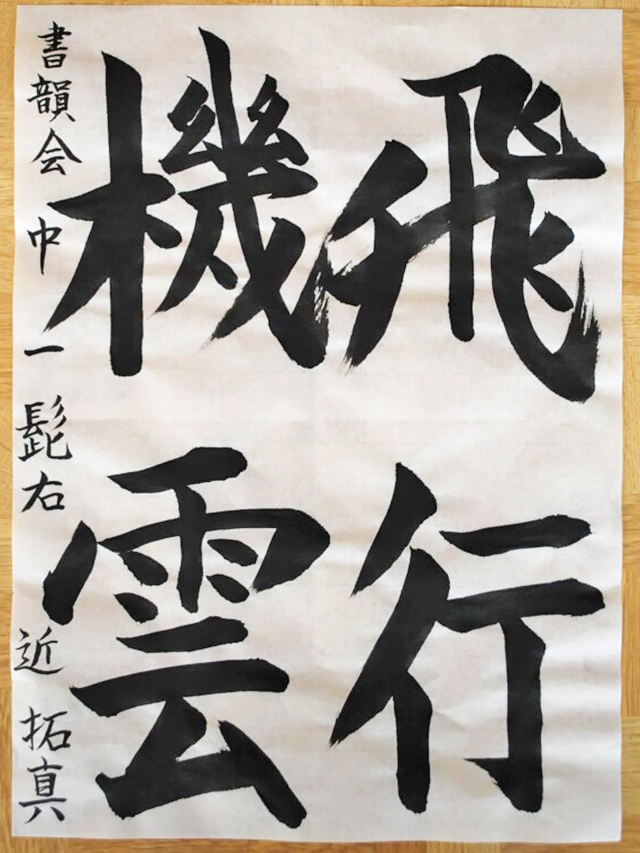 飛行
機雲
書韻会 中一 髭右近 拓真